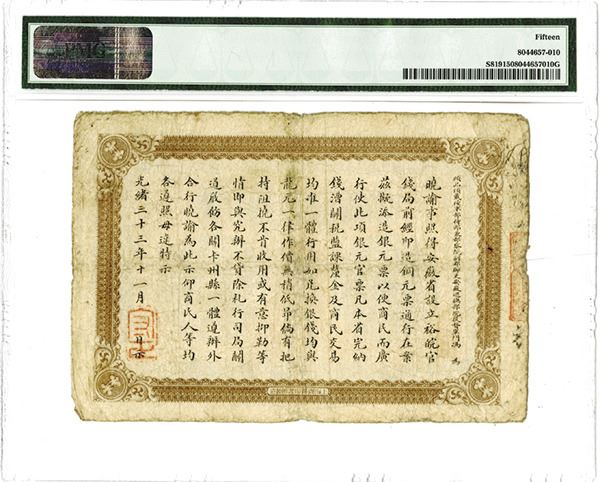 PMG
Fifteen
8044657-010
S8191508044657010G
為
曉諭事照得安徽省設立裕皖官
錢局前經印造銅元票通行在案
茲擬添造銀元票以便商民而廣
行使此項銀元官票凡本省完納
錢漕關稅鹽課釐金及商民交易
均准一體行用如兌換銀錢均與
龍元一律作價無稍低昂倘有把
持阻撓不肯收用或有意抑勒等
情即與究辦不貸除札行司局關
道飭各關卡州縣一體遵辦外
合行曉諭為此示仰商民人等均
各遵照毋違特示
光緒三十三年十一月 日示